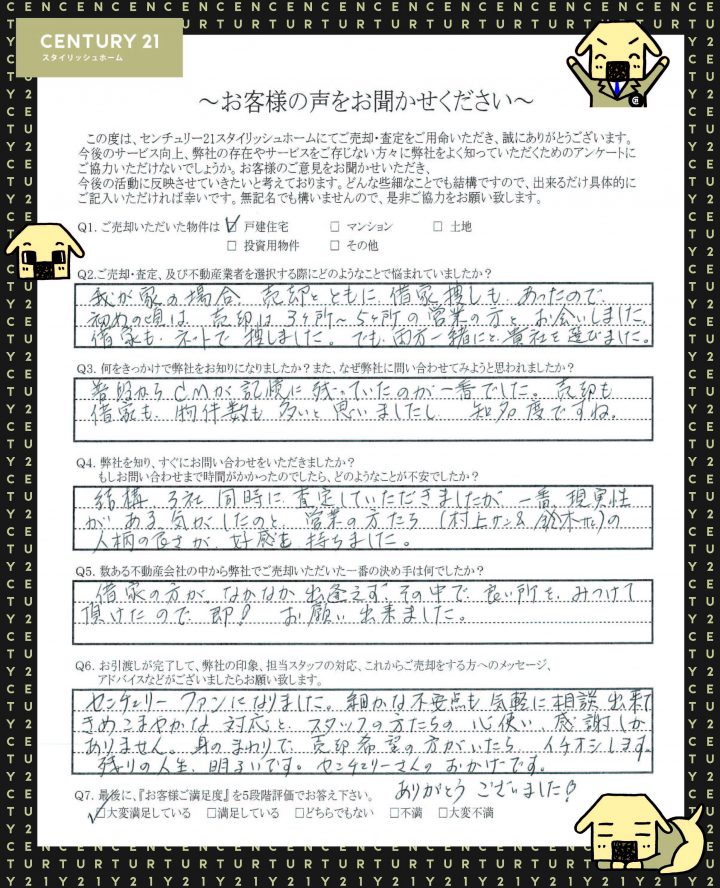 CENTURY 21
スタイリッシュホーム
～お客様の声をお聞かせください～
この度は、センチュリー21スタイリッシュホームにてご売却・査定をご用命いただき、誠にありがとうございます。
今後のサービス向上、弊社の存在やサービスをご存じない方々に弊社をよく知っていただくためのアンケートに
ご協力いただけないでしょうか。お客様のご意見をお聞かせいただき、
今後の活動に反映させていきたいと考えております。どんな些細なことでも結構ですので、出来るだけ具体的に
ご記入いただければ幸いです。無記名でも構いませんので、是非ご協力をお願い致します。
Q1. ご売却いただいた物件は ☑ 戸建住宅 □ マンション □ 土地
□ 投資用物件 □ その他
Q2.ご売却・査定、及び不動産業者を選択する際にどのようなことで悩まれていましたか？
我が家の場合、売却とともに、借家捜しも、あったので、
初めの頃は、売却は3ヶ所～5ヶ所の営業の方と、お会いしました。
借家も、ネットで、捜しました。でも、両方一緒にと、貴社を選びました。
Q3. 何をきっかけで弊社をお知りになりましたか？また、なぜ弊社に問い合わせてみようと思われましたか？
普段から、CMが記憶に残っていたのが一番でした。売却も
借家も、物件数も多いと思いましたし、知名度ですね。
Q4. 弊社を知り、すぐにお問い合わせをいただきましたか？
もしお問い合わせまで時間がかかったのでしたら、どのようなことが不安でしたか？
結構、3社、同時に、査定していただきましたが、一番、現実性
がある気がしたのと、営業の方たち（村上サン&鈴木サン）の
人柄の良さが、好感を持ちました。
Q5. 数ある不動産会社の中から弊社でご売却いただいた一番の決め手は何でしたか？
借家の方が、なかなか出逢えず、その中で、良い所を、みつけて
頂けたので、即！ お願い出来ました。
Q6. お引渡しが完了して、弊社の印象、担当スタッフの対応、これからご売却をする方へのメッセージ、
アドバイスなどがございましたらお願い致します。
センチェリーファンになりました。細かな不安点も、気軽に相談出来て
きめこまやかな対応と、スタッフの方たちの心使い、感謝しか
ありません。身のまわりで、売却希望の方がいたら、イチオシします。
残りの人生、明るいです。センチェリーさんのおかげです。
ありがとうございました！
Q7. 最後に、『お客様ご満足度』を5段階評価でお答え下さい。
☑大変満足している □満足している □どちらでもない □不満 □大変不満